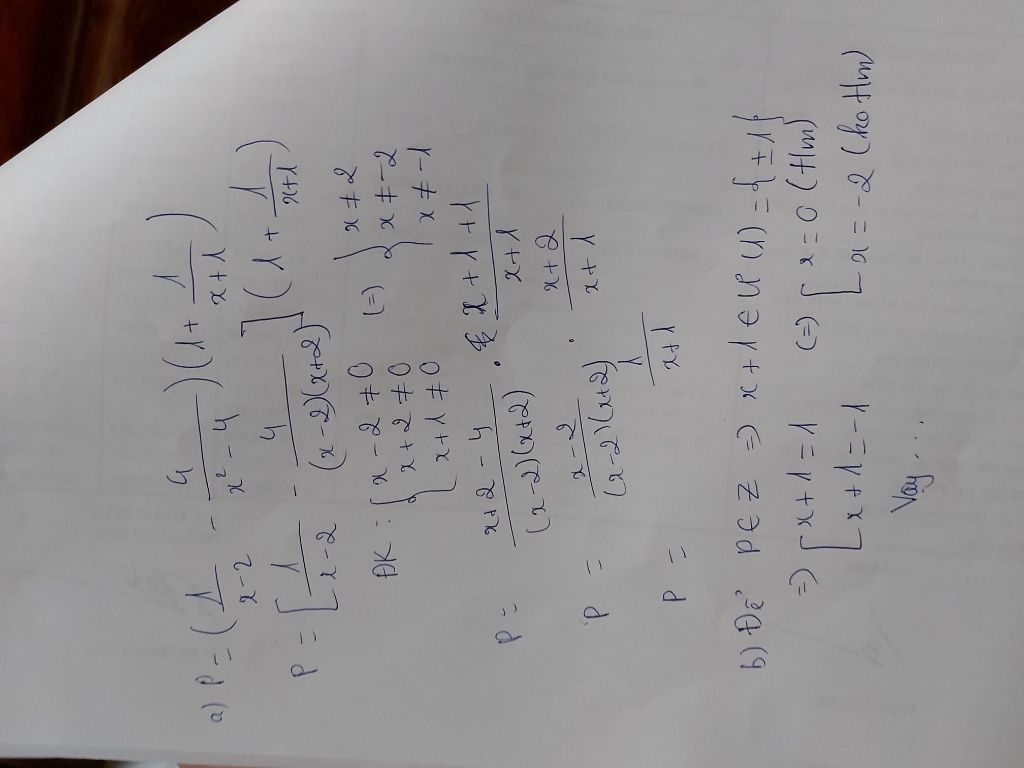 a) P = ( 1/(x-2) - 4/(x² - 4) ) ( 1 + 1/(x+1) )
P = [ 1/(x-2) - 4/((x-2)(x+2)) ] ( 1 + 1/(x+1) )
ĐK : { x - 2 ≠ 0 (=) } x ≠ 2
x + 2 ≠ 0 x ≠ -2
x + 1 ≠ 0 x ≠ -1
P = (x+2 - 4)/((x-2)(x+2)) . (x + 1 + 1)/(x+1)
P = (x-2)/((x-2)(x+2)) . (x+2)/(x+1)
P = 1/(x+1)
b) Để P ∈ Z => x + 1 ∈ Ư(1) = {±1}
=> [ x + 1 = 1 (=) [ x = 0 (t/m)
x + 1 = -1 x = -2 (ko t/m)
Vậy ...